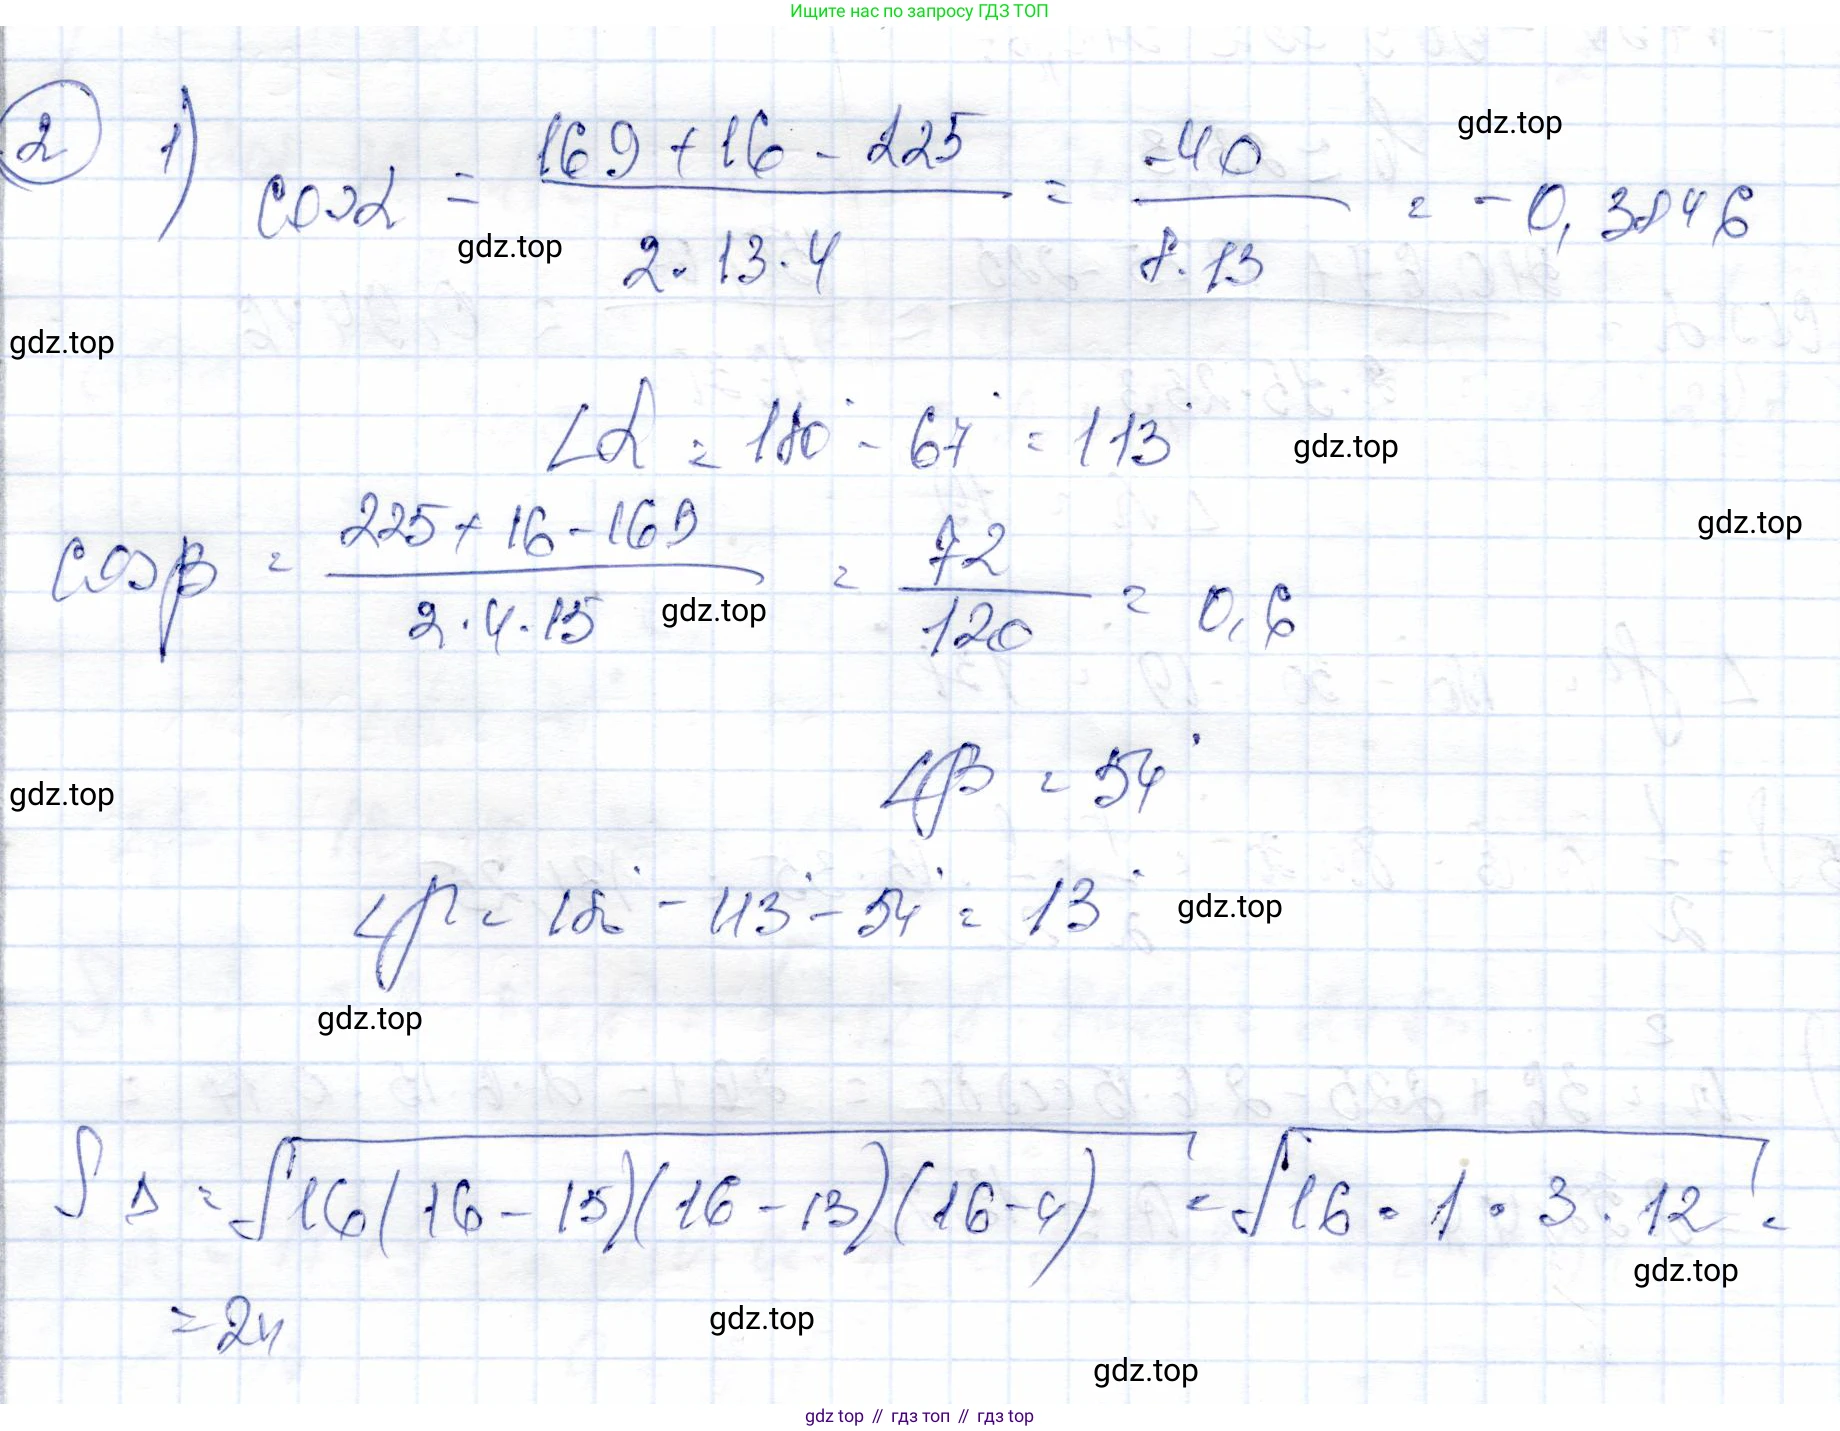 Ищите нас по запросу ГДЗ ТОП
2 1) cos α = (169 + 16 - 225) / (2 · 13 · 4) = -40 / (8 · 13) = -0,3846
gdz.top
gdz.top
gdz.top
∠α = 180° - 67° = 113°
gdz.top
gdz.top
cos β = (225 + 16 - 169) / (2 · 4 · 15) = 72 / 120 = 0,6
gdz.top
∠β = 54°
gdz.top
∠γ = 180° - 113° - 54° = 13°
gdz.top
gdz.top
S Δ = √(16(16 - 15)(16 - 13)(16 - 4)) = √(16 · 1 · 3 · 12) =
gdz.top
= 24
gdz.top
gdz.top
gdz top // гдз топ // гдз top